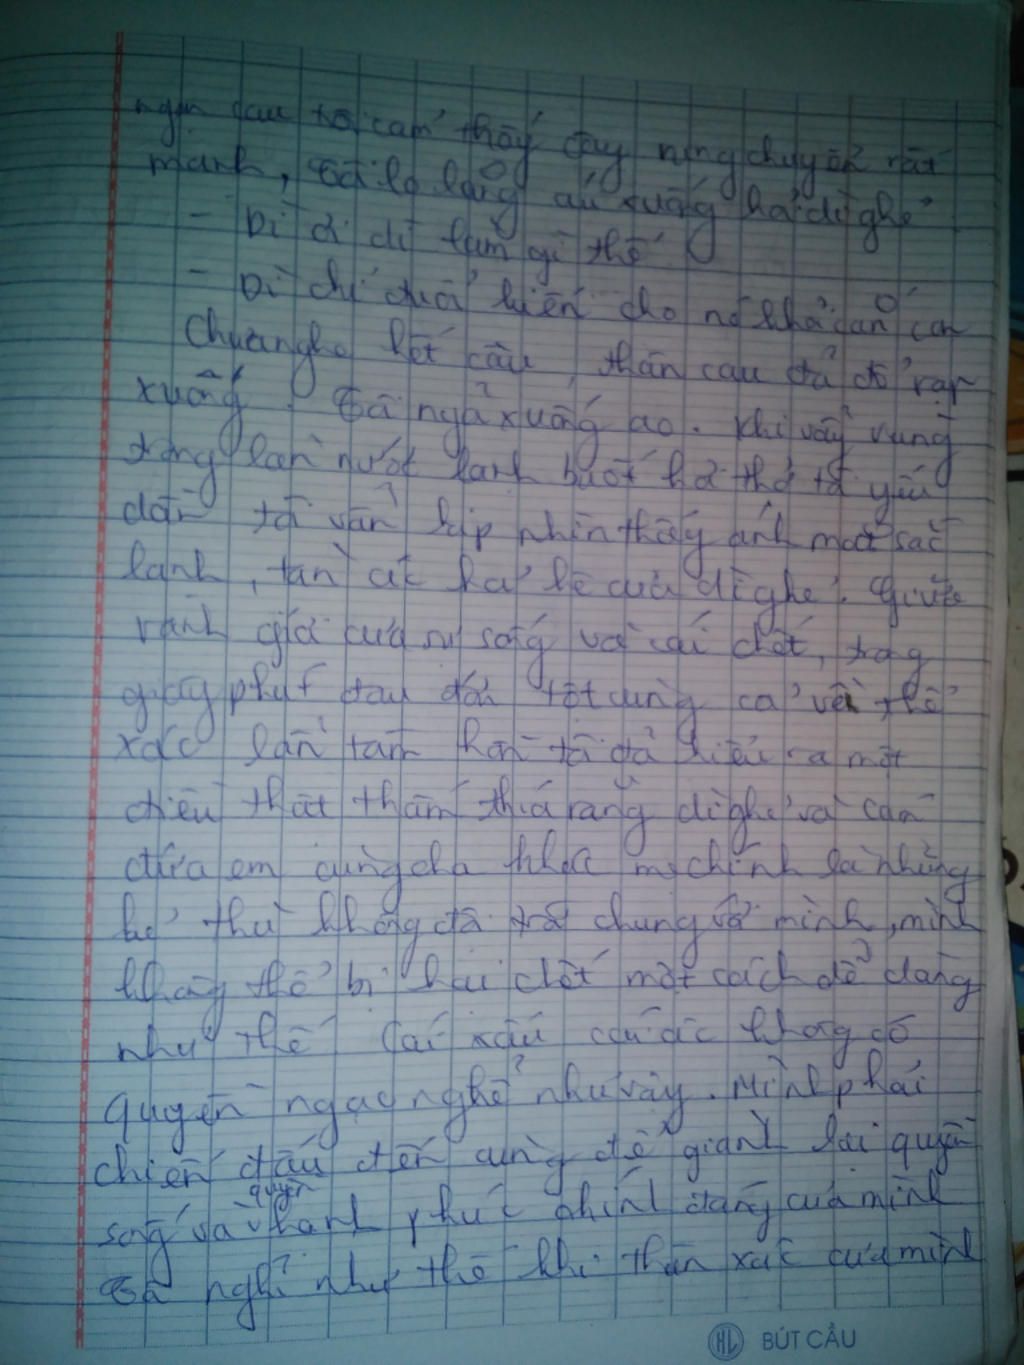 ngọn cau tôi cảm thấy cây rung chuyển rất
mạnh, tôi lo lắng cúi xuống hỏi dì ghẻ
- Dì ơi dì làm gì thế
- Dì chỉ đuổi kiến cho nó khỏi cắn con
Chưa nghe hết câu, thân cau đã đổ rạp
xuống. Tôi ngã xuống ao. Khi vẫy vùng
trong làn nước lạnh buốt hơi thở tôi yếu
dần tôi vẫn kịp nhìn thấy ánh mắt sắc
lạnh, tàn ác hả hê của dì ghẻ. Giữa
ranh giới của sự sống và cái chết, trong
giây phút đau đớn tột cùng cả về thể
xác lẫn tâm hồn tôi đã hiểu ra một
điều thật thấm thía rằng dì ghẻ và con
đứa em cùng cha khác mẹ chính là những
kẻ thù không đội trời chung với mình, mình
không thể bị hại chết một cách dễ dàng
như thế Cái xấu cái ác không có
quyền ngạo nghễ như vậy. Mình phải
chiến đấu đến cùng để giành lại quyền
sống và quyền hạnh phúc chính đáng của mình
Tôi nghĩ như thế khi thân xác của mình
HL BÚT CẦU